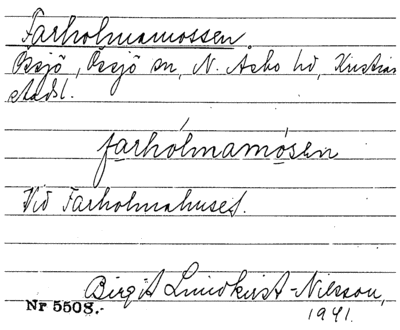 Farholmamossen
Össjö, Össjö sn, N. Åsbo hd, Kristian
stadsl.
farhólmamósen
Vid Farholmahuset.
Birgit Lundkvist-Nilsson,
Nr 5508.-
1941.